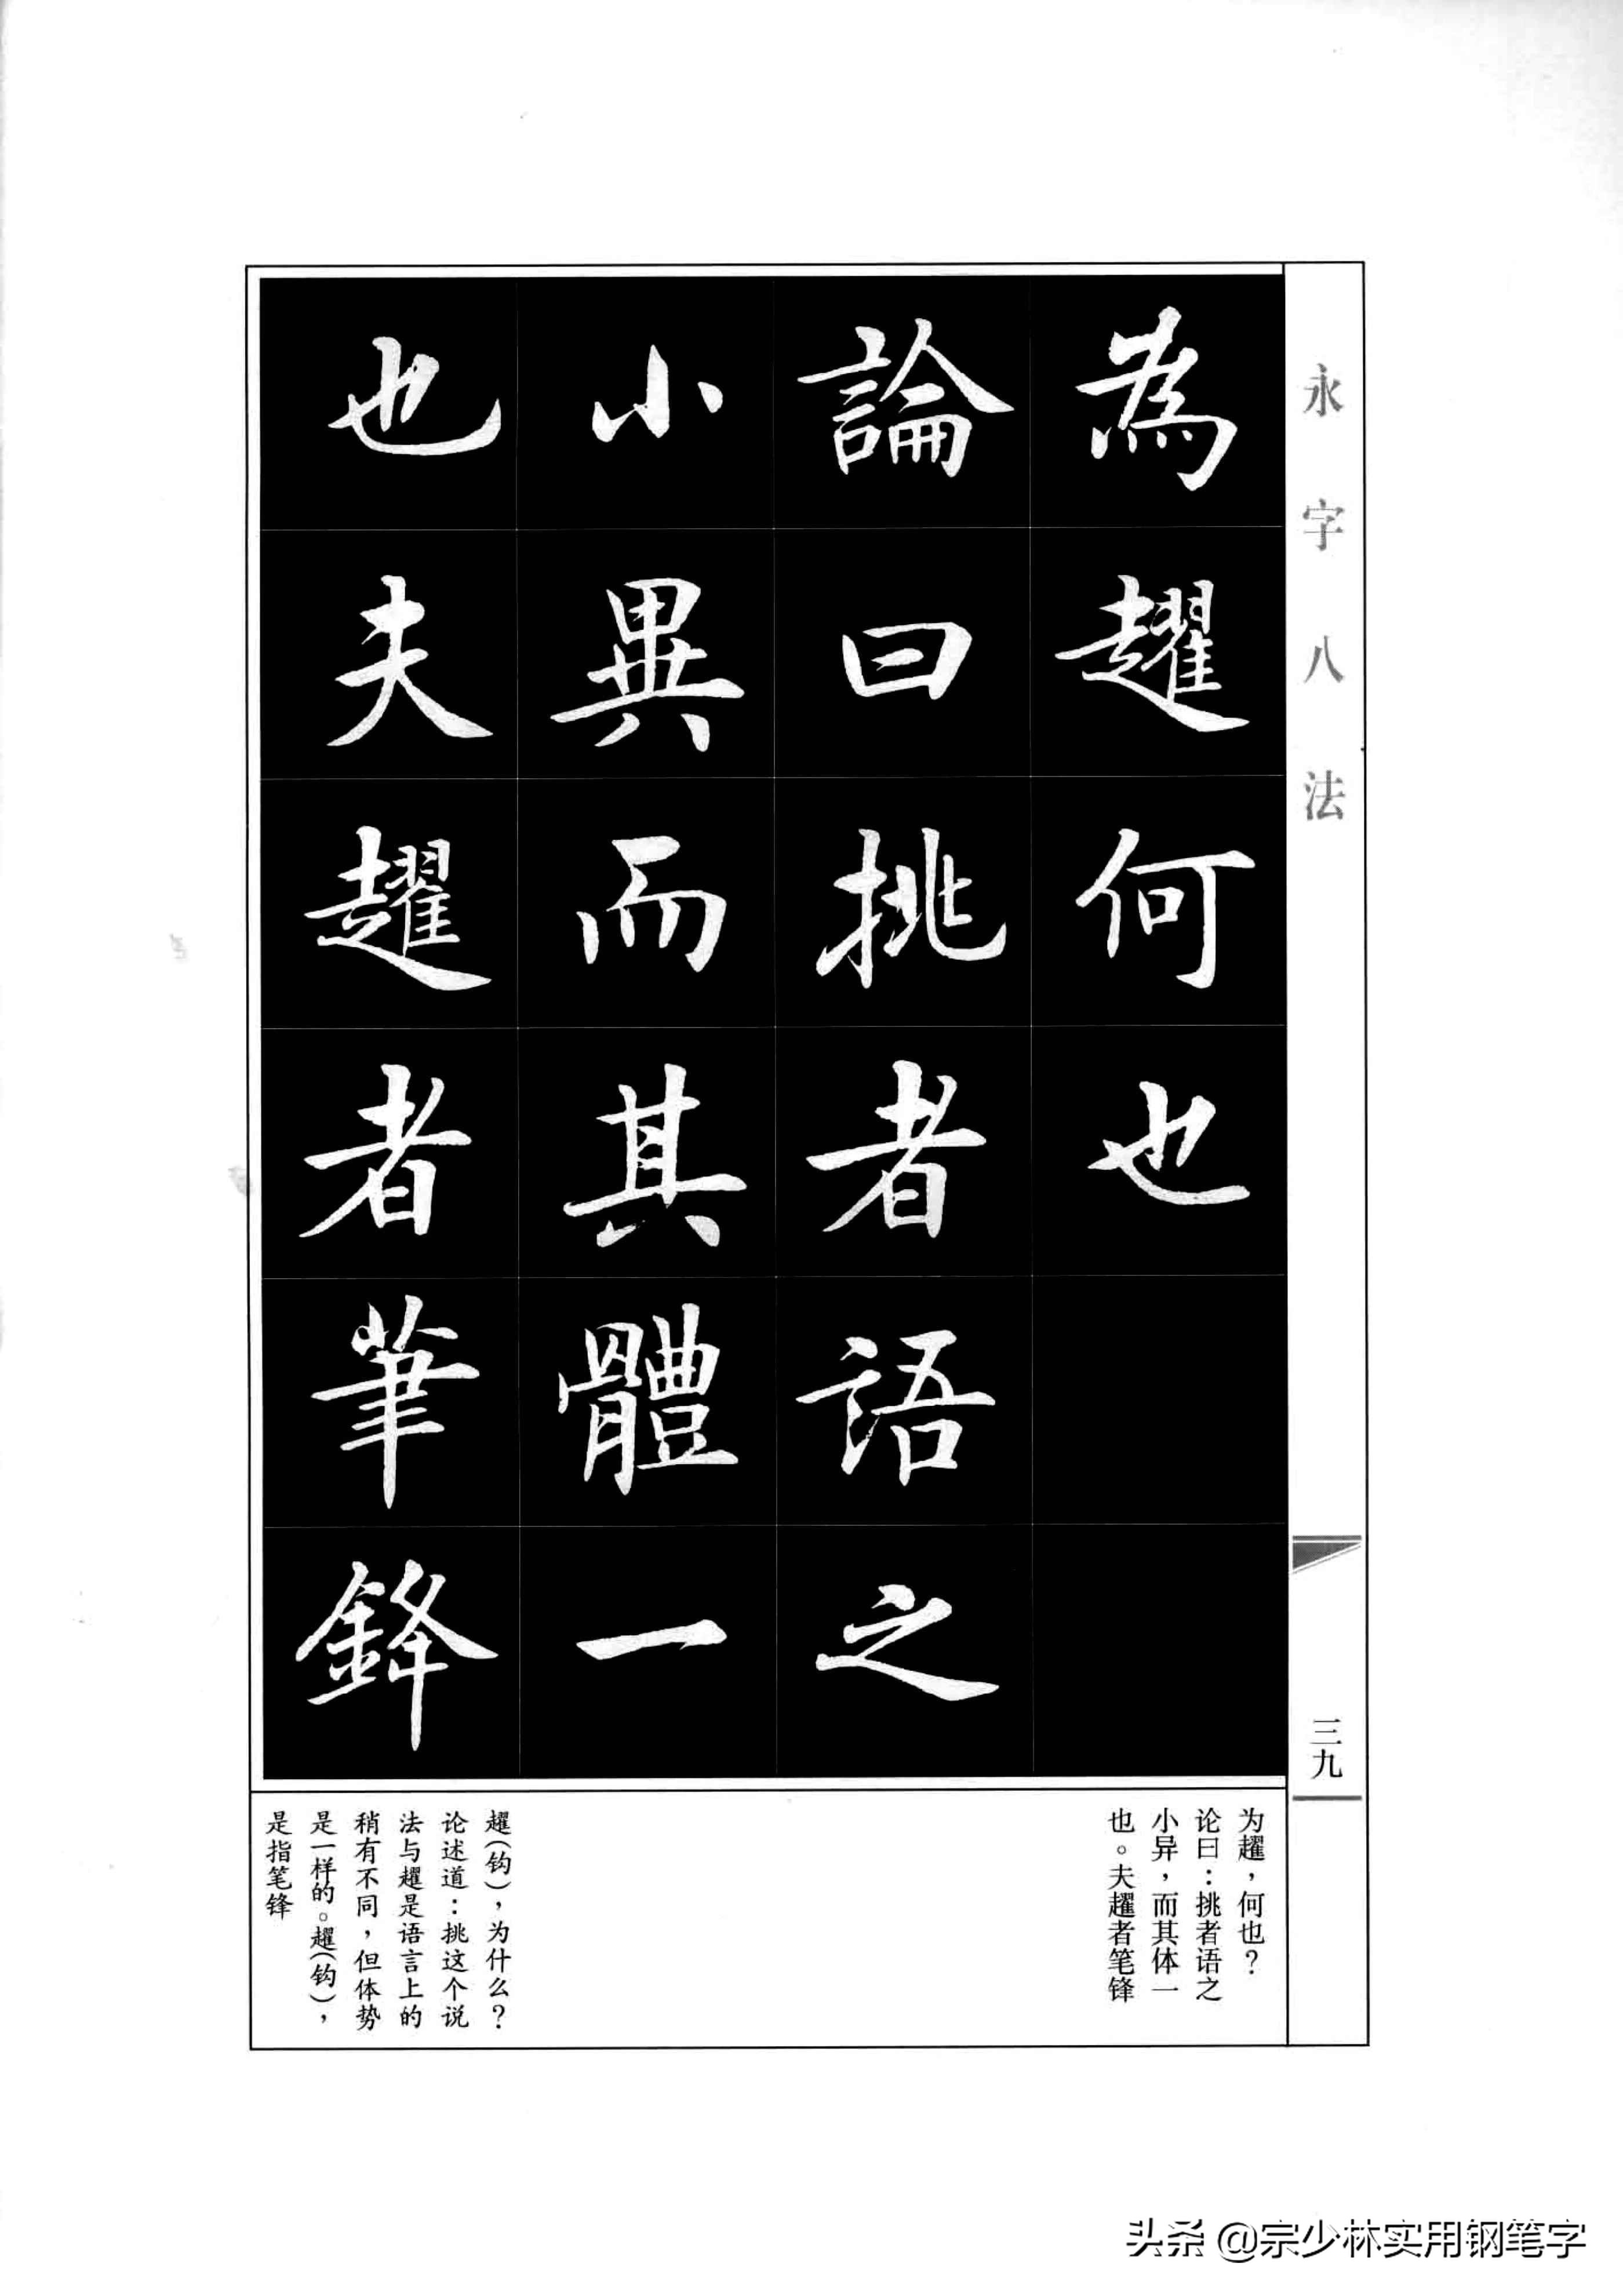 永字八法
三九
為趯何也
論曰挑者語之
小異而其體一
也夫趯者筆鋒
为趯，何也？
论曰：挑者语之
小异，而其体一
也。夫趯者笔锋
趯（钩），为什么？
论述道：挑这个说
法与趯是语言上的
稍有不同，但体势
是一样的。趯（钩），
是指笔锋
头条 @宗少林实用钢笔字